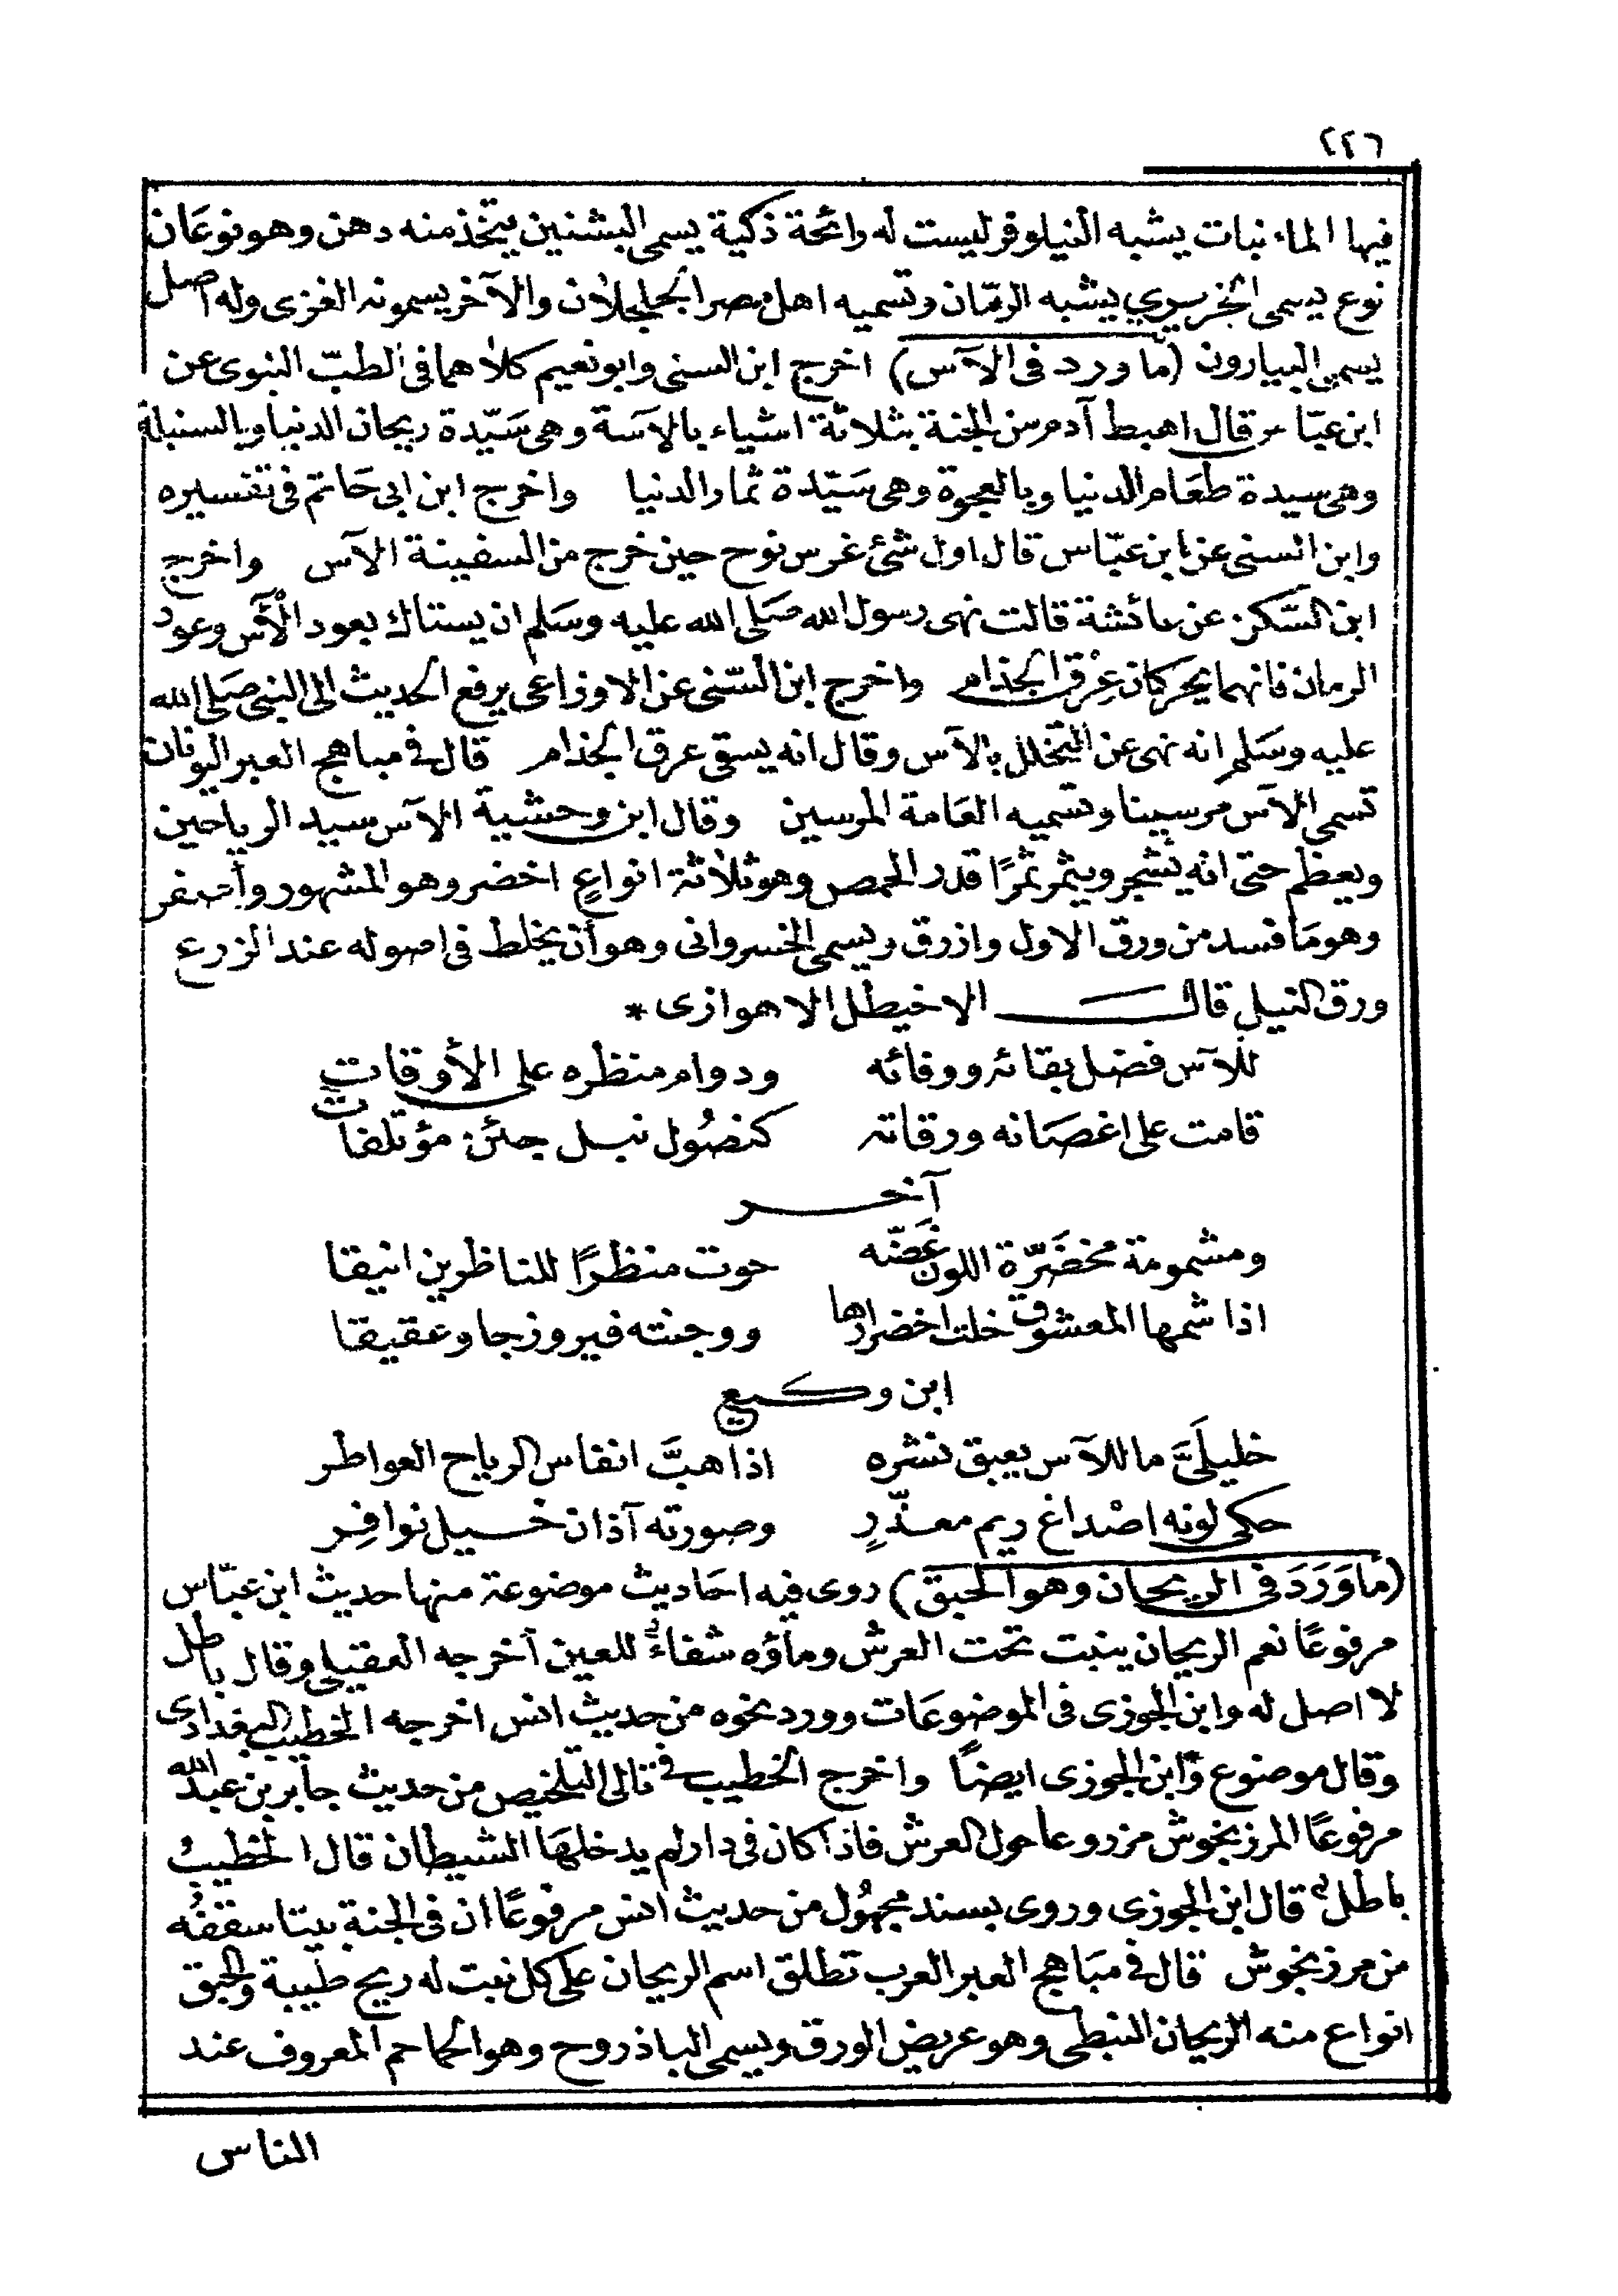 ٢٢٦
فيها الماء نبات يشبه النيلوفر ليست له رائحة ذكية يسمى البشنين يتخذ منه دهن وهو نوعان
نوع يسمى الخزيرى يشبه الرمّان وتسميه اهل مصر الجلجلان والآخر يسمونه الغزى وله اصل
يسمى البيارون (ما ورد فى الآس) اخرج ابن السنى وابو نعيم كلاهما فى الطبّ النبوى عن
ابن عبّاس قال اهبط آدم من الجنة بثلاثة اشياء بالآسة وهى سَيّدة ريحان الدنيا وبالسنبلة
وهى سيدة طعَام الدنيا وبالعجوة وهى سَيّدة ثمار الدنيا واخرج ابن ابى حَاتم فى تفسيره
وابن السنى عن ابن عبّاس قال اول شئ غرس نوح حين خرج من السفينة الآس واخرج
ابن السّكن عن عائشة قالت نهى رسول الله صَلى الله عليه وسَلم ان يستاك بعود الآس وعود
الرمان فانهما يحركان عِرْق الجذام واخرج ابن السّنى عن الاوزاعى يرفع الحديث الى النبى صَلى الله
عليه وسَلم انه نهى عن التخلل بالآس وقال انه يسقى عرق الجذام قال فى مباهج العبر اليونان
تسمى الآس مرسينا وتسميه العَامة المرسين وقال ابن وحشية الآس سيد الرياحين
ويعظم حتى انه يشجر ويثمر ثمرًا قدر الحمص وهو ثلاثة انواعٍ اخضر وهو المشهور وأصفر
وهو مَا فسد من ورق الاول وازرق ويسمى الخسروانى وهو أن يخلط فى اصوله عند الزرع
ورق النيل قال الاخيطل الاهوازى *
للآس فضل بقائه ووفائه ودوام منظره على الأوقات
قامت على اغصَانه ورقاته كنصُول نبل جئن مؤتلفات
آخر
ومشمومة مخضَرّة اللون غَضّه حوت منظرًا للناظرين انيقا
اذا شمها المعشوق خلت اخضرارها ووجنته فيروزجا وعقيقا
ابن وكيع
خليلَىَّ ما للآس يعبق نشره اذا هبَّ انفاس الرياح العواطر
حكى لونه اصْداغ ريم معذّرٍ وصورته آذان خيل نوافِر
(مَا وَرَدَ فى الريحان وهو الحبق) روى فيه احَاديث موضوعة منها حديث ابن عبّاس
مرفوعًا نعم الريحان ينبت تحت العرش وماؤه شفاءٌ للعين أخرجه العقيلى وقال باطل
لا اصل له وابن الجوزى فى الموضوعَات وورد نحوه من حديث انس اخرجه الخطيب البغدادى
وقال موضوع وابن الجوزى ايضًا واخرج الخطيب فى تالى التلخيص من حديث جابر بن عبد الله
مرفوعًا المرزنجوش مزروعا حول العرش فاذا كان فى دار لم يدخلهَا الشيطان قال الخطيب
باطلٌ قال ابن الجوزى وروى بسند مجهُول من حديث انس مرفوعًا ان فى الجنة بيتا سقفُه
من مرزنجوش قال فى مبَاهج العبر العرب تطلق اسم الريحان على كل نبت له ريح طيبة والحبق
انواع منه الريحان النبطى وهو عريض الورق ويسمى الباذروح وهو الحماحم المعروف عند
الناس